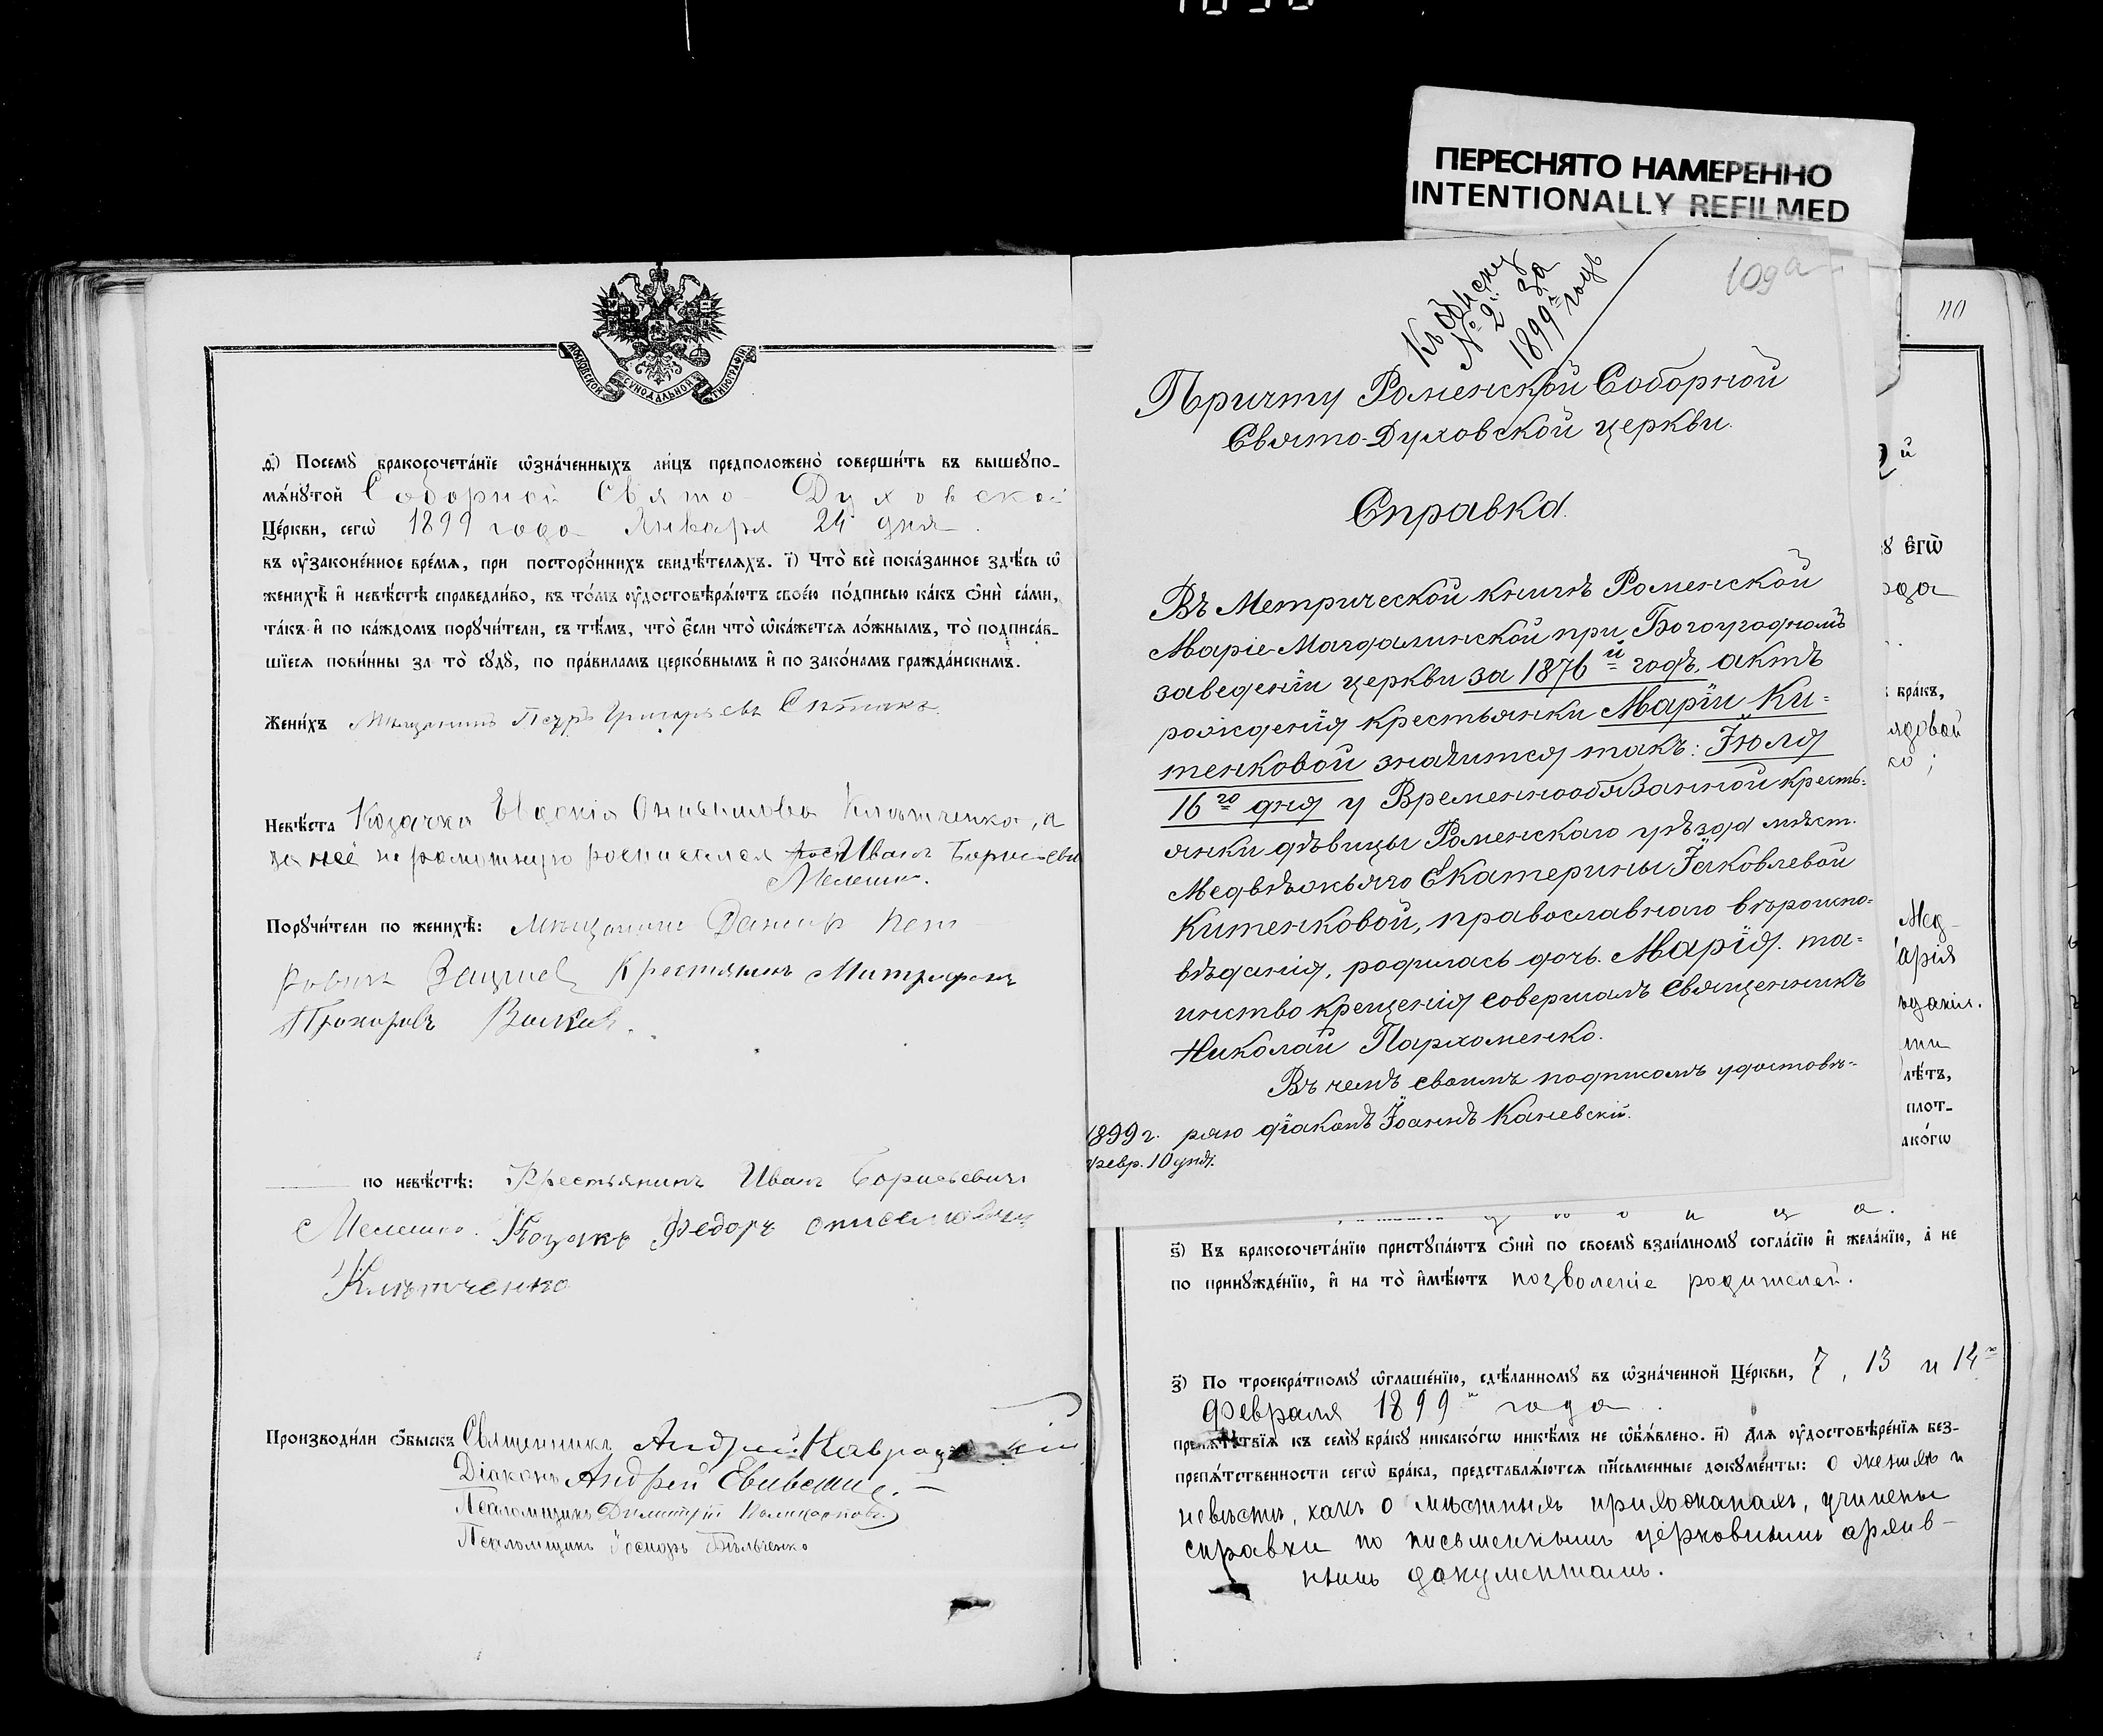 ПЕРЕСНЯТО НАМЕРЕННО
INTENTIONALLY REFILMED
МОСКОВСКОЙ СѴНОДАЛЬНОЙ ТИПОГРАФІИ
Посемꙋ̀ бракосочета́нїе ѡ҆зна́ченныхъ ли́цъ предположено̀ соверши́ть въ вышеꙋпо-
мѧ́нꙋтой Соборной Свято-Духовской
Це́ркви, сегѡ̀ 1899 года Января 24 дня.
въ ᲂу҆законе́нное вре́мѧ, при посторо́ннихъ свидѣ́телѧхъ. і҃) Что̀ всѐ пока́занное здѣ́сь ѡ҆
женихѣ̀ и҆ невѣ́стѣ справедли́во, въ то́мъ ᲂу҆достовѣрѧ́ютъ свое́ю по́дписью ка́къ ѻ҆нѝ са́ми,
та́къ и҆ по ка́ждомъ порꙋчи́тели, съ тѣ́мъ, что̀ є҆́сли что̀ ѡ҆ка́жетсѧ ло́жнымъ, то̀ подписа́в-
шїесѧ пови́нны за то̀ сꙋдꙋ̀, по пра́виламъ церко́внымъ и҆ по зако́намъ гражда́нскимъ.
Жени́хъ Мѣщанинъ Петръ Григорьевъ
Невѣ́ста Козачка Евдокія Онисимова Клютченко, а
за неё неграмотную росписался Иванъ Борисьевъ
Мелешко.
Порꙋчи́тели по женихѣ̀: мѣщанинъ Пет-
ровичъ Крестянинъ Митрофанъ
Прохоровъ Волковъ.
по невѣ́стѣ: Крестьянинъ Иванъ Борисьевичъ
Мелешко. Козакъ Федоръ
Производи́ли ѻ҆́быскъ Священникъ Андрей
Діаконъ Андрей
Псаломщикъ Димитрій Поликарповъ
Псаломщикъ Іосифъ Бѣльченко
109а
110
Къ обыску
№ 2й за
1899й годъ
Причту Роменской Соборной
Свято-Духовской церкви.
Справка.
Въ Метрической книгѣ Роменской
Маріе-Магдалинской при Богоугодномъ
заведеніи церкви за 1876й годъ, актъ
рожденія крестьянки Маріи Ки-
тенковой значится такъ: Іюля
16го дня у Временнообязанной кресть-
янки дѣвицы Роменскаго уѣзда мѣст.
Медвѣжьяго Екатерины Іаковлевой
Китенковой, православнаго вѣроиспо-
вѣданія, родилась дочь Марія. та-
инство крещенія совершалъ Священникъ
Николай Пархоменко.
Въ чемъ своимъ подписомъ удостовѣ-
1899 г. ряю діаконъ Іоаннъ Каневскій.
февр. 10 дня.
є҆гѡ̀
года
бра́къ,
Мед-
арія
лѣ́тъ,
плот-
ѕ҃) Къ бракосочета́нїю пристꙋпа́ютъ ѻ҆нѝ по своемꙋ̀ взаи́мномꙋ согла́сїю и҆ жела́нїю, а҆ не
по принꙋжде́нїю, и҆ на то̀ и҆мѣ́ютъ позволеніе родителей.
з҃) По троекра́тномꙋ ѡ҆глаше́нїю, сдѣ́ланномꙋ въ ѡ҆зна́ченной Це́ркви, 7, 13 и 14го
Февраля 1899й года.
препѧ́тствїѧ къ семꙋ̀ бра́кꙋ никако́гѡ никѣ́мъ не ѡ҆б̾ѧ́влено. и҃) Длѧ ᲂу҆достовѣре́нїѧ без-
препѧ́тственности сегѡ̀ бра́ка, представлѧ́ютсѧ пи́сьменные докꙋме́нты: о женихѣ и
невѣстѣ, какъ о мѣстныхъ прихожанахъ, учинены
справки по письменнымъ церковнымъ архив-
нымъ документамъ.